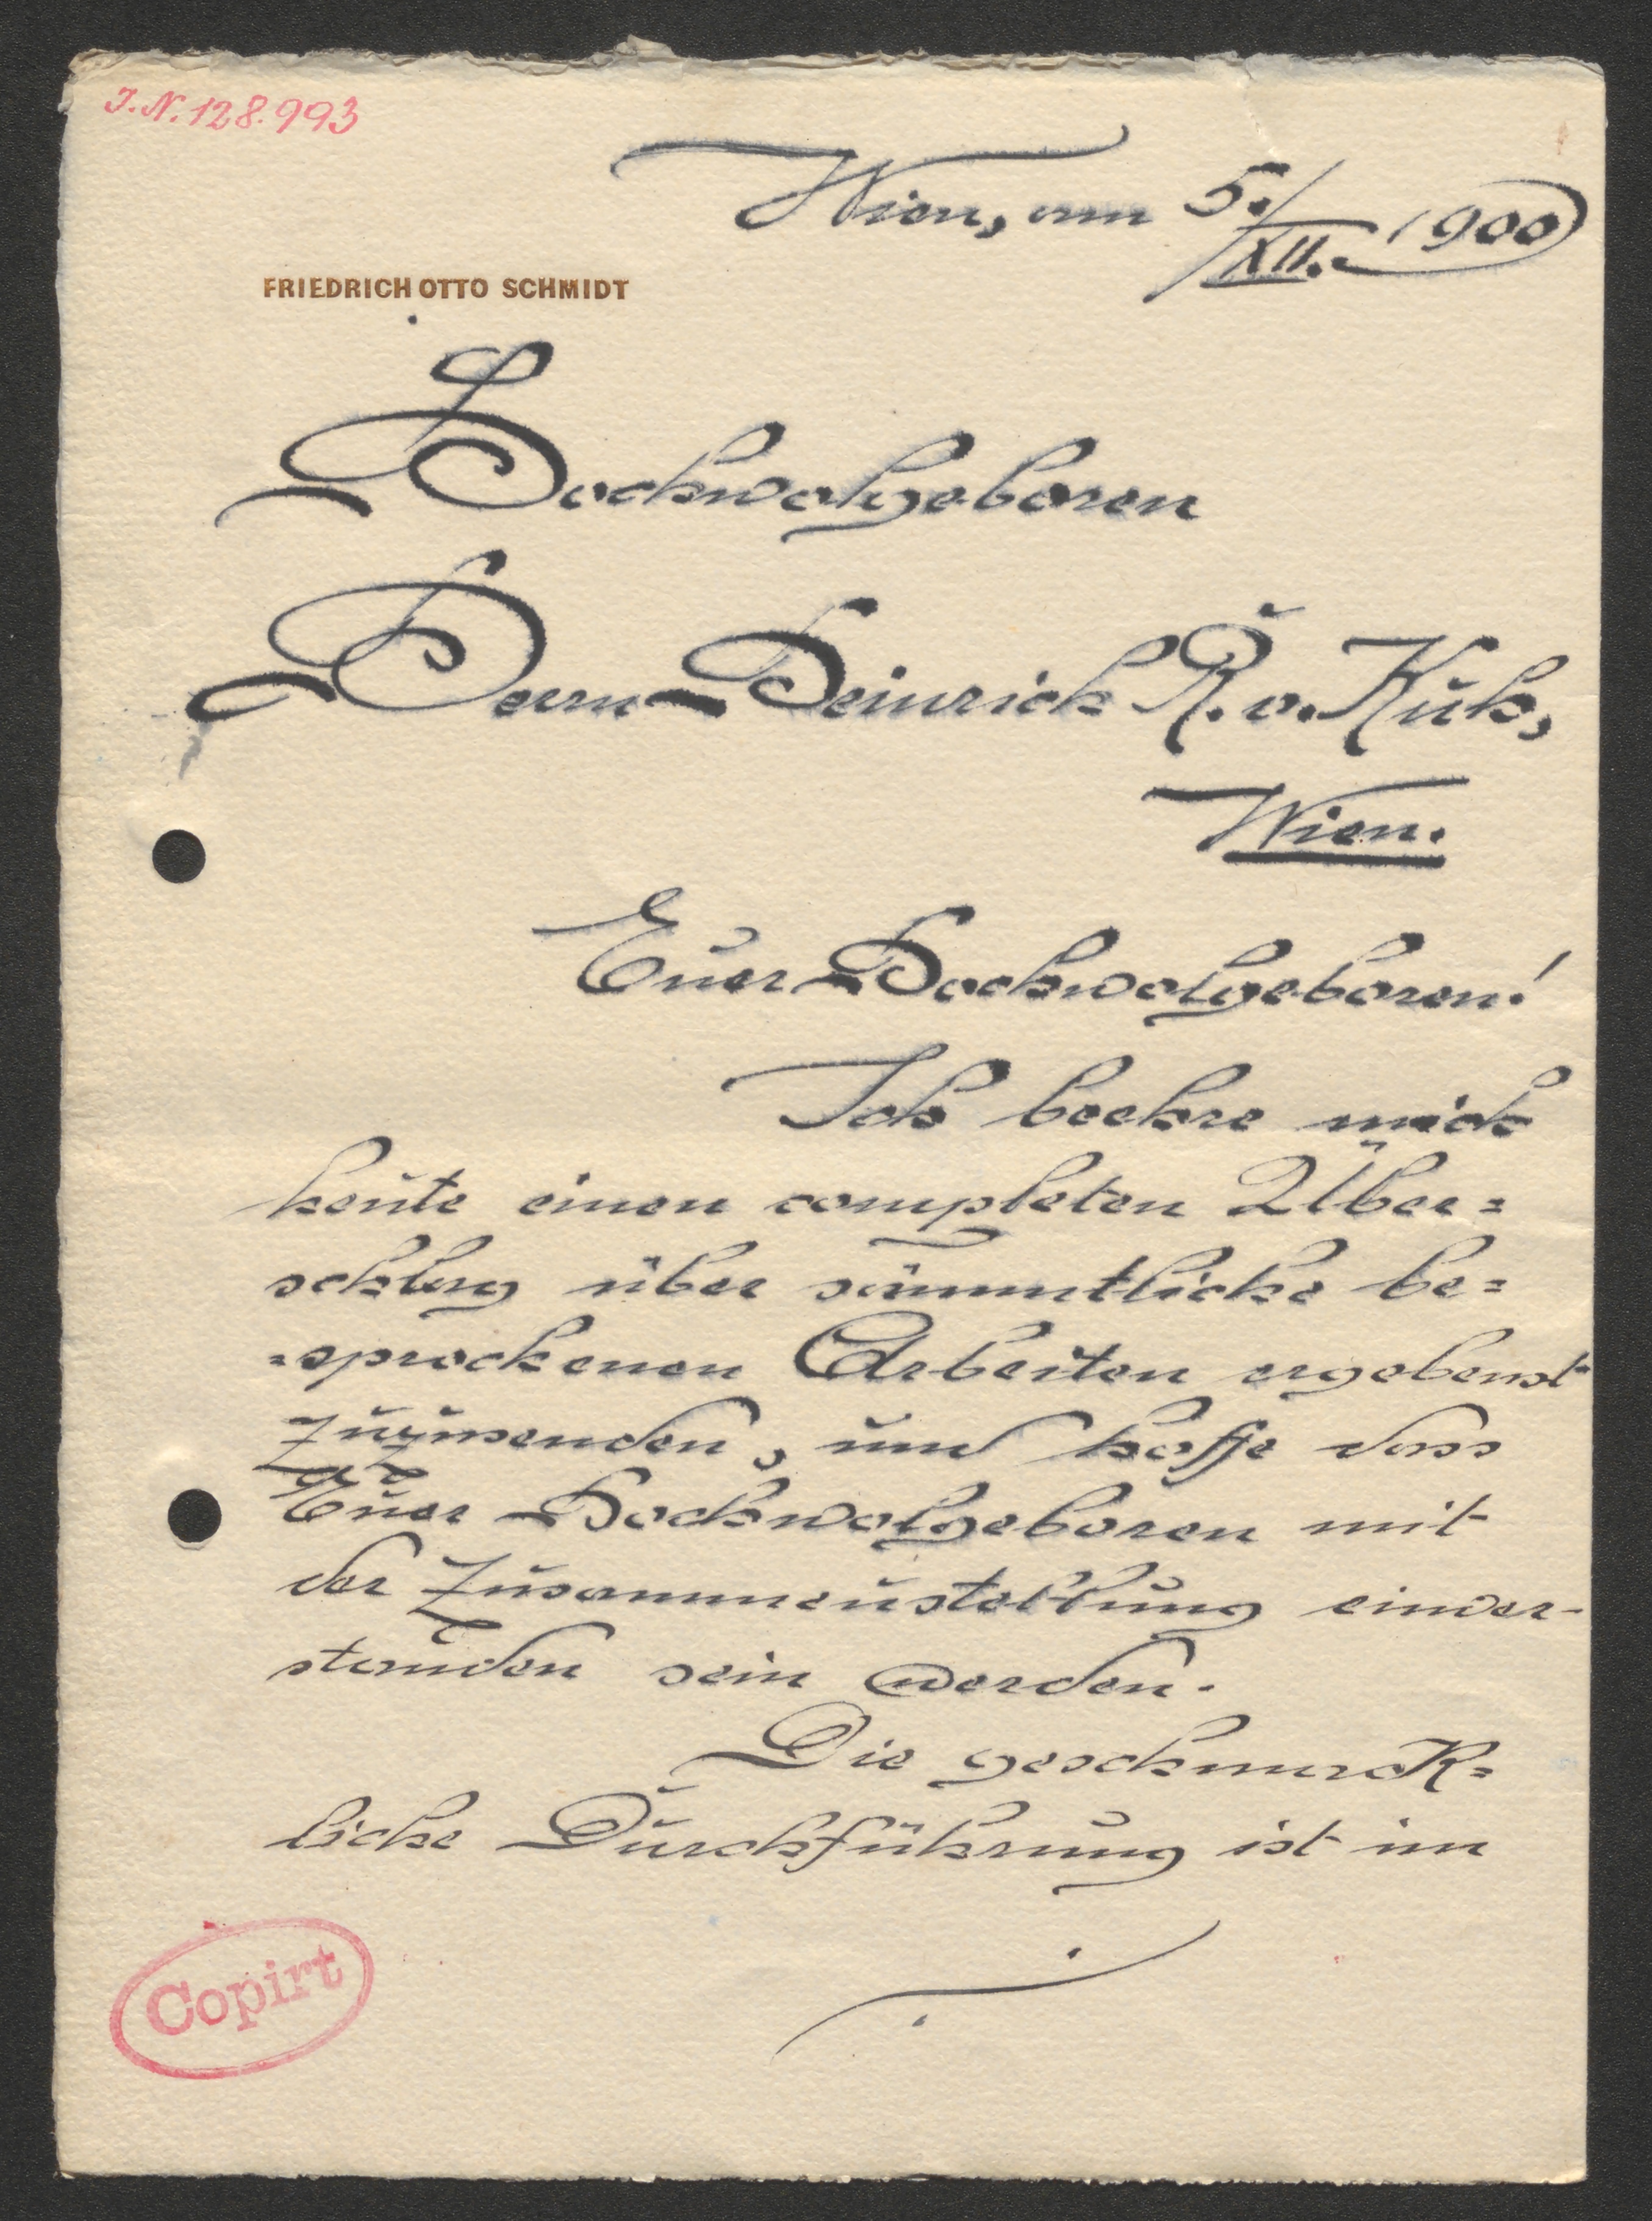 J.N. 128.993
Wien, am 5./XII. 1900
FRIEDRICH OTTO SCHMIDT
Hochwolgeboren
Herrn Heinrich R. v. Kuh,
Wien.
Euer Hochwolgeboren!
Ich beehre mich
heute einen completen Über=
schlag über sämmtliche be=
=sprochenen Arbeiten ergebenst
zuzusenden, und hoffe dass
Euer Hochwolgeboren mit
der Zusammenstellung einver-
standen sein werden.
Die geschmack=
liche Durchführung ist im
Copirt